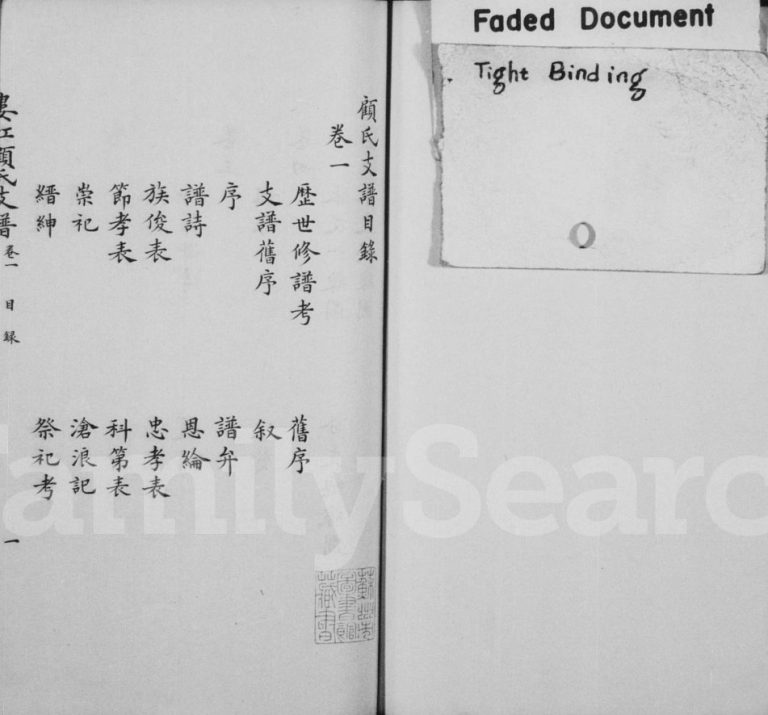 Faded Document
Tight Binding
顧氏支譜目錄
卷一
歷世修譜考 舊序
支譜舊序 叙
序 譜弁
譜詩 恩綸
族俊表 忠孝表
節孝表 科第表
崇祀 滄浪記
縉紳 祭祀考
婁江顧氏支譜 卷一 目錄 一
蘇州圖書館藏書
FamilySearc